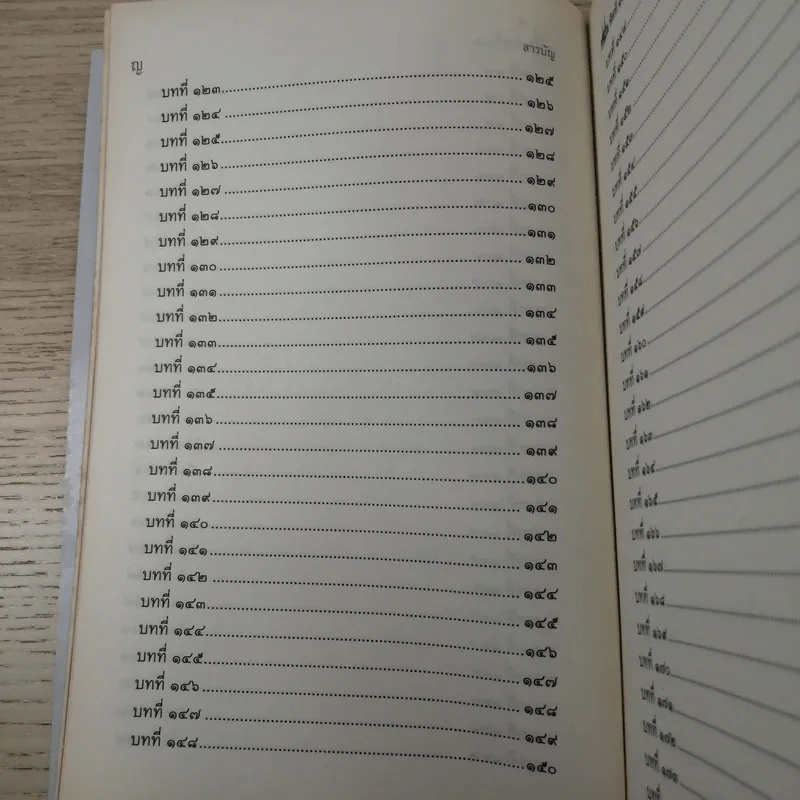 ญ
สารบัญ
บทที่ ๑๒๓ ๑๒๕
บทที่ ๑๒๔ ๑๒๖
บทที่ ๑๒๕ ๑๒๗
บทที่ ๑๒๖ ๑๒๘
บทที่ ๑๒๗ ๑๒๙
บทที่ ๑๒๘ ๑๓๐
บทที่ ๑๒๙ ๑๓๑
บทที่ ๑๓๐ ๑๓๒
บทที่ ๑๓๑ ๑๓๓
บทที่ ๑๓๒ ๑๓๔
บทที่ ๑๓๓ ๑๓๕
บทที่ ๑๓๔ ๑๓๖
บทที่ ๑๓๕ ๑๓๗
บทที่ ๑๓๖ ๑๓๘
บทที่ ๑๓๗ ๑๓๙
บทที่ ๑๓๘ ๑๔๐
บทที่ ๑๓๙ ๑๔๑
บทที่ ๑๔๐ ๑๔๒
บทที่ ๑๔๑ ๑๔๓
บทที่ ๑๔๒ ๑๔๔
บทที่ ๑๔๓ ๑๔๕
บทที่ ๑๔๔ ๑๔๖
บทที่ ๑๔๕ ๑๔๗
บทที่ ๑๔๖ ๑๔๘
บทที่ ๑๔๗ ๑๔๙
บทที่ ๑๔๘ ๑๕๐
บทที่ ๑๕๐
บทที่ ๑๕๑
บทที่ ๑๕๒
บทที่ ๑๕๓
บทที่ ๑๕๔
บทที่ ๑๕๕
บทที่ ๑๕๖
บทที่ ๑๕๗
บทที่ ๑๕๘
บทที่ ๑๕๙
บทที่ ๑๖๐
บทที่ ๑๖๑
บทที่ ๑๖๒
บทที่ ๑๖๓
บทที่ ๑๖๔
บทที่ ๑๖๕
บทที่ ๑๖๖
บทที่ ๑๖๗
บทที่ ๑๖๘
บทที่ ๑๖๙
บทที่ ๑๗๐
บทที่ ๑๗๑
บทที่ ๑๗๒
บทที่ ๑๗๓